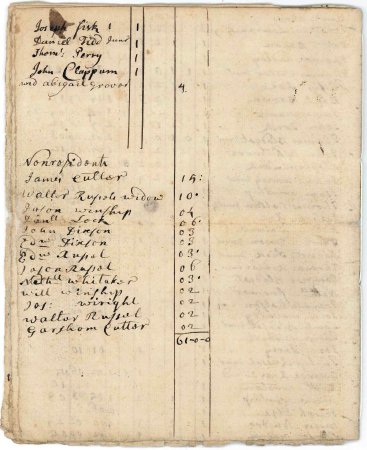 Joseph Fisk 1 1
Daniel Tidd Junr 1
Thoms: Perry 1
John Clappum 1
wid abigail Grover 4
Nonresidents
James Cutler 15:
Walter Russels widow 10:
Jason Winship 04
Lock 06:
John Dixson 03
Edw Dixson 03
Edw Russel 03:
Jason Russel 06
Nathll Whitaker 03:
Will Winship 02
Jos: wright 02
Walter Russel 02
Garshom Cutter 02
61-0-0